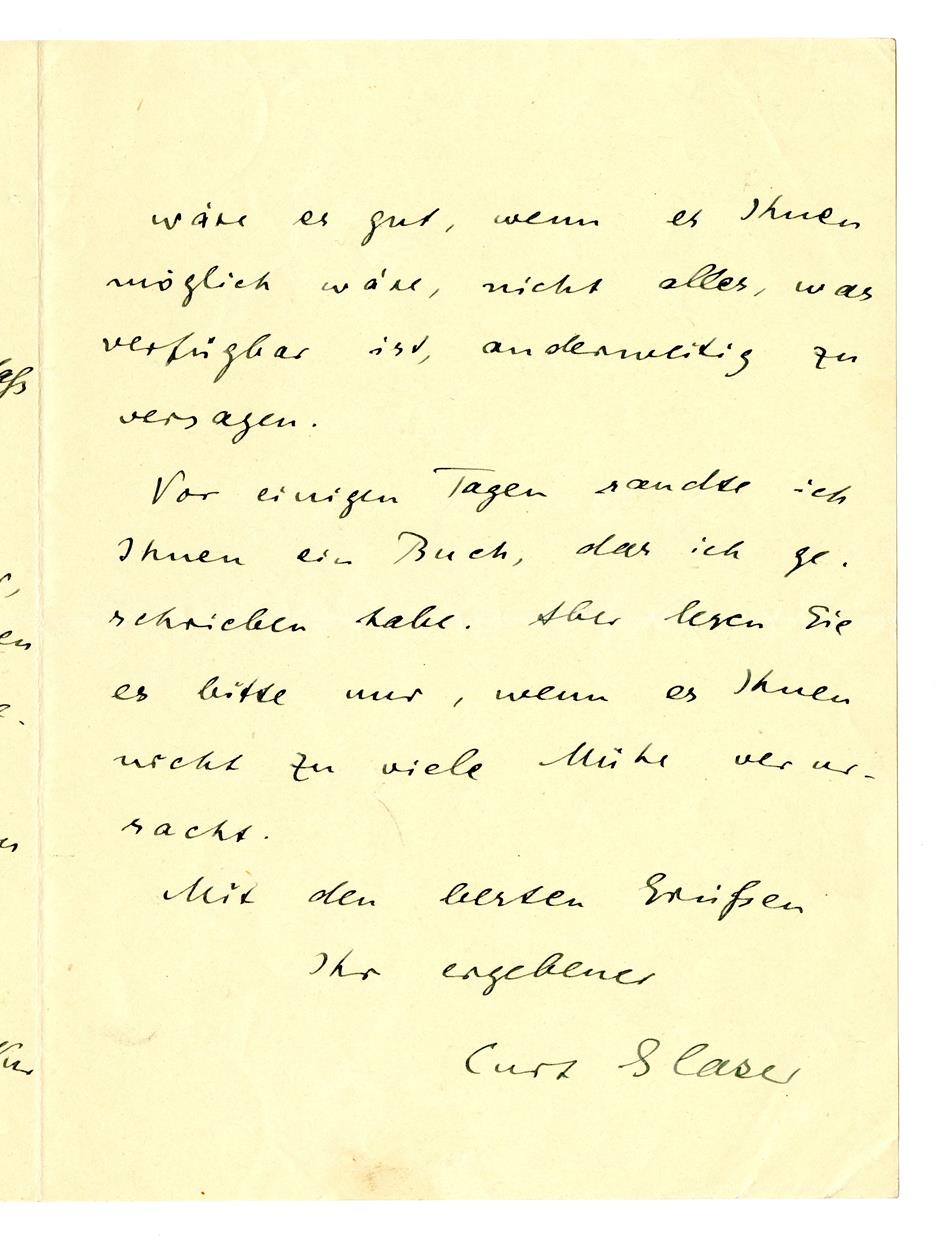 wäre es gut, wenn es Ihnen
möglich wäre, nicht alles, was
verfügbar ist, anderweitig zu
versagen.
Vor einigen Tagen sandte ich
Ihnen ein Buch, das ich ge-
schrieben habe. Aber lesen Sie
es bitte nur, wenn es Ihnen
nicht zu viele Mühe verur-
sacht.
Mit den besten Grüßen
Ihr ergebener
Curt Glaser